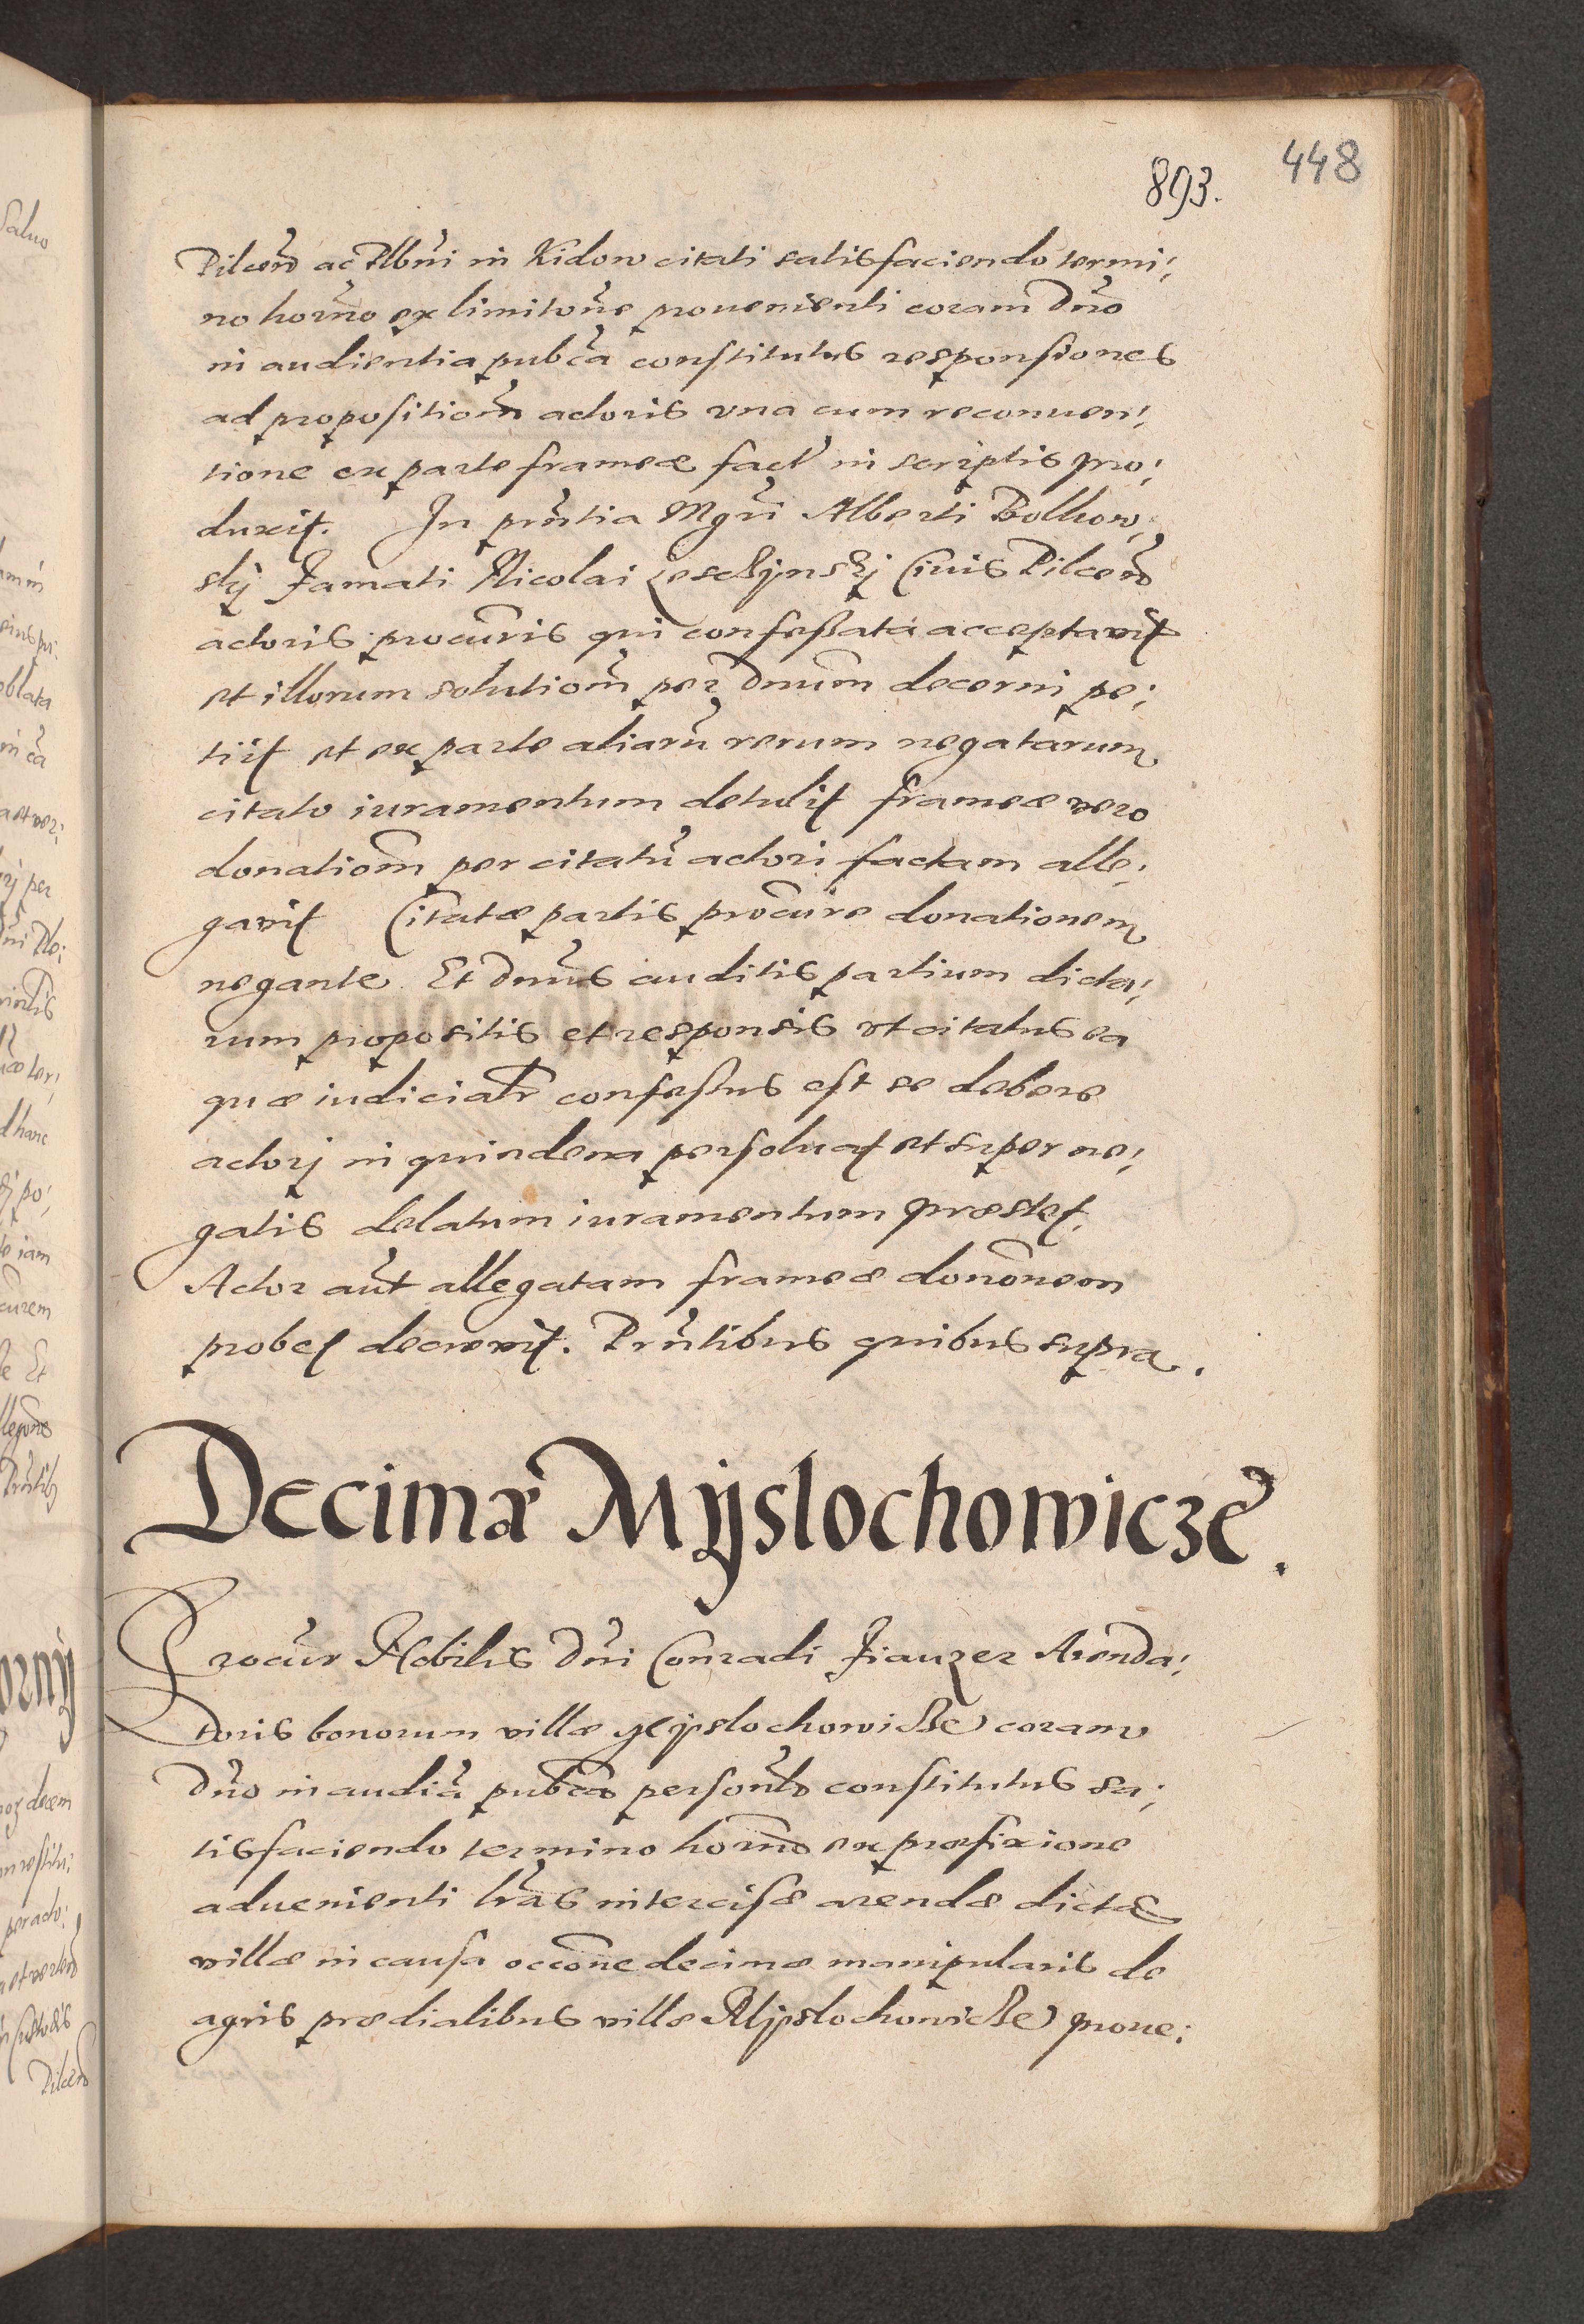 448
893.
Pilcen̄ ac Plbni in Kidow citati satisfaciendo termi;
no horno ex limitone prouenienti coram Dno
in audientia pubca constitutus responsiones
ad propositiom actoris vna cum reconuen;
tione ex parte frameæ fact in scriptis pro;
duxit. In pntia Mgri Alberti
skÿ Famati Nicolai Ciuis Pilcen̄
actoris procuris qui confeßata acceptauit
et illorum solutiom per Dnum decerni pe;
tiit et ex parte aliaru rerum negatarum
citato iuramentum detulit frameæ vero
donatiom per citatu actori factam alle;
gauit Citatæ partis procure donationem
negante. Et Dnus auditis partium dicta;
rum propositis et responsis vt citatus ea
quæ iudicialr confessus est se debere
actorj in quindena persoluat et super ne;
gatis delatum iuramentum præstet.
Actor aut allegatam frameæ dononem
probet decreuit. Pntibus quibus supra.
Decimæ Mÿslochowicze.
Procur Nobilis Dni Conradi Arenda;
toris bonorum villæ Mÿslochowicze coram
Dno in audia pubca personlr constitutus sa;
tisfaciendo termino horno ex præfixione
aduenienti lras intercisæ arendæ dictæ
villæ in causa occone decimæ manipularis de
agris prædialibus villæ Mÿslochowicze proue;